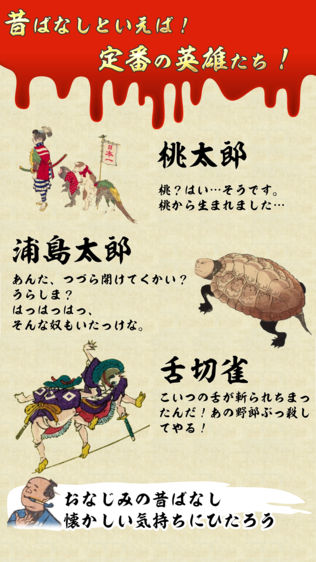 昔ばなしといえば！
定番の英雄たち！
日本一
桃太郎
桃？はい…そうです。
桃から生まれました…
浦島太郎
あんた、つづら開けてくかい？
うらしま？
はっはっはっ、
そんな奴もいたっけな。
舌切雀
こいつの舌が斬られちまっ
たんだ！あの野郎ぶっ殺し
てやる！
おなじみの昔ばなし
懐かしい気持ちにひたろう